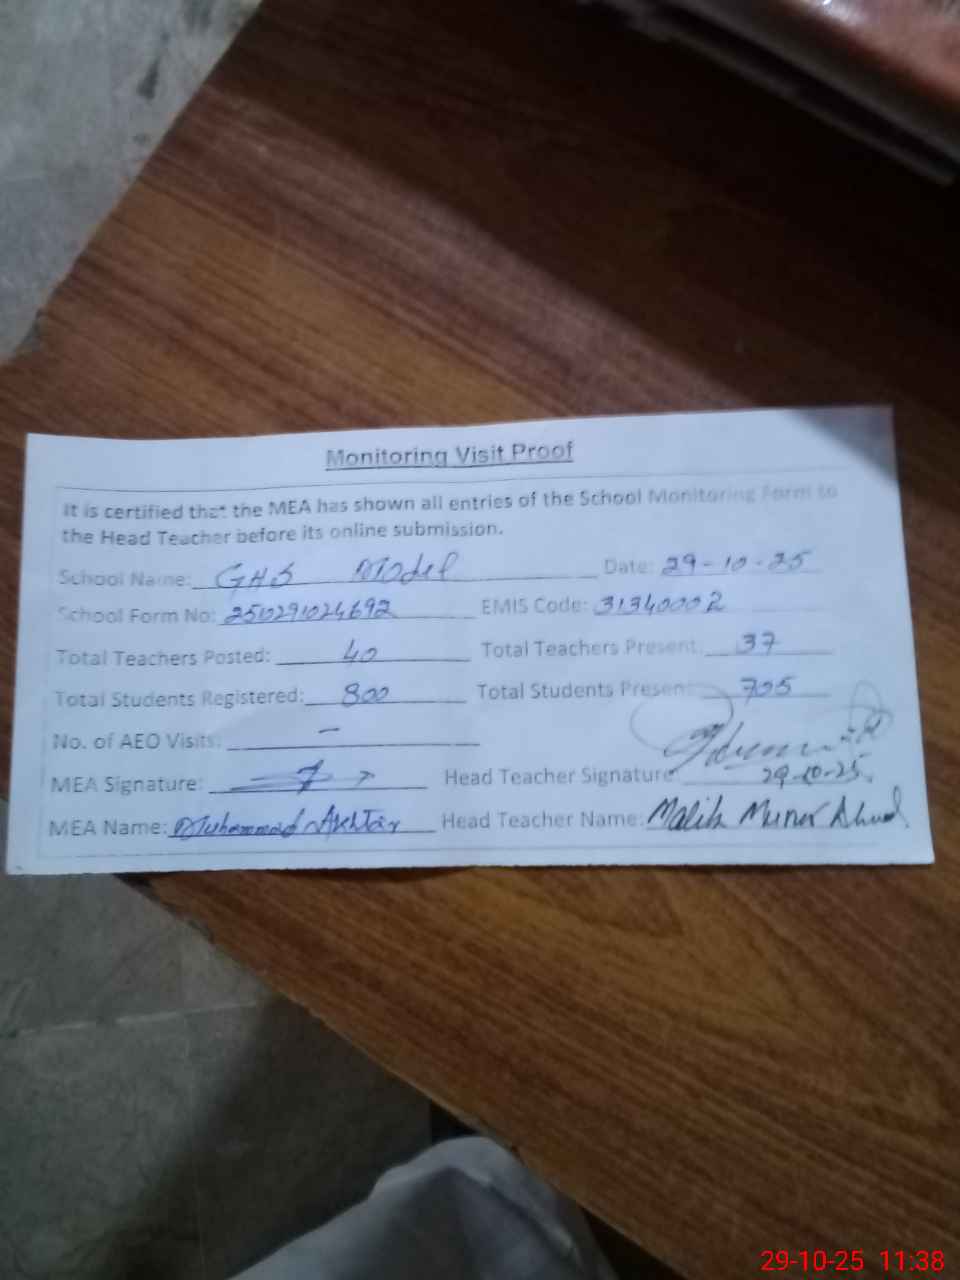 Monitoring Visit Proof
It is certified that the MEA has shown all entries of the School Monitoring Form to
the Head Teacher before its online submission.
School Name: GHS Model Date: 29-10-25
School Form No: 250291024692 EMIS Code: 31340002
Total Teachers Posted: 40 Total Teachers Present: 37
Total Students Registered: 800 Total Students Present: 705
No. of AEO Visits: –
MEA Signature: Head Teacher Signature 29-10-25
MEA Name: Muhammad Akhtar Head Teacher Name: Malik Munir Ahmad
29-10-25 11:38